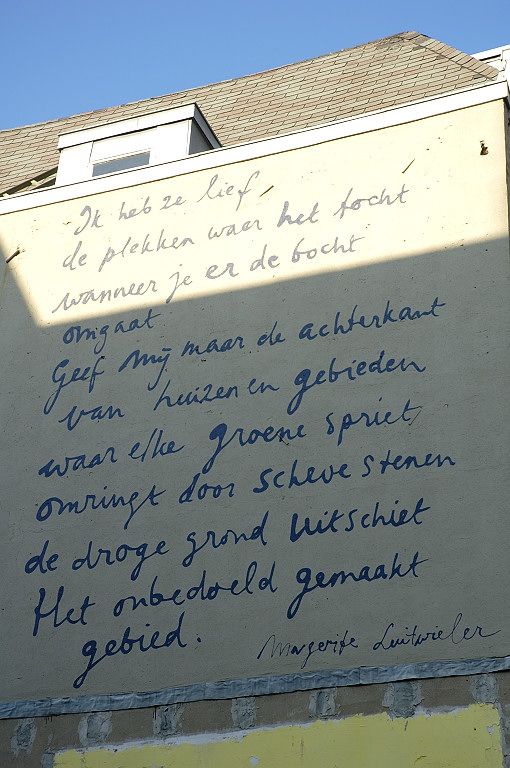 Ik heb ze lief,
de plekken waar het tocht
wanneer je er de bocht
omgaat
Geef mij maar de achterkant
van huizen en gebieden
waar elke groene spriet
omringt door scheve stenen
de droge grond uitschiet
Het onbedoeld gemaakt
gebied.
Margerite Luitwieler